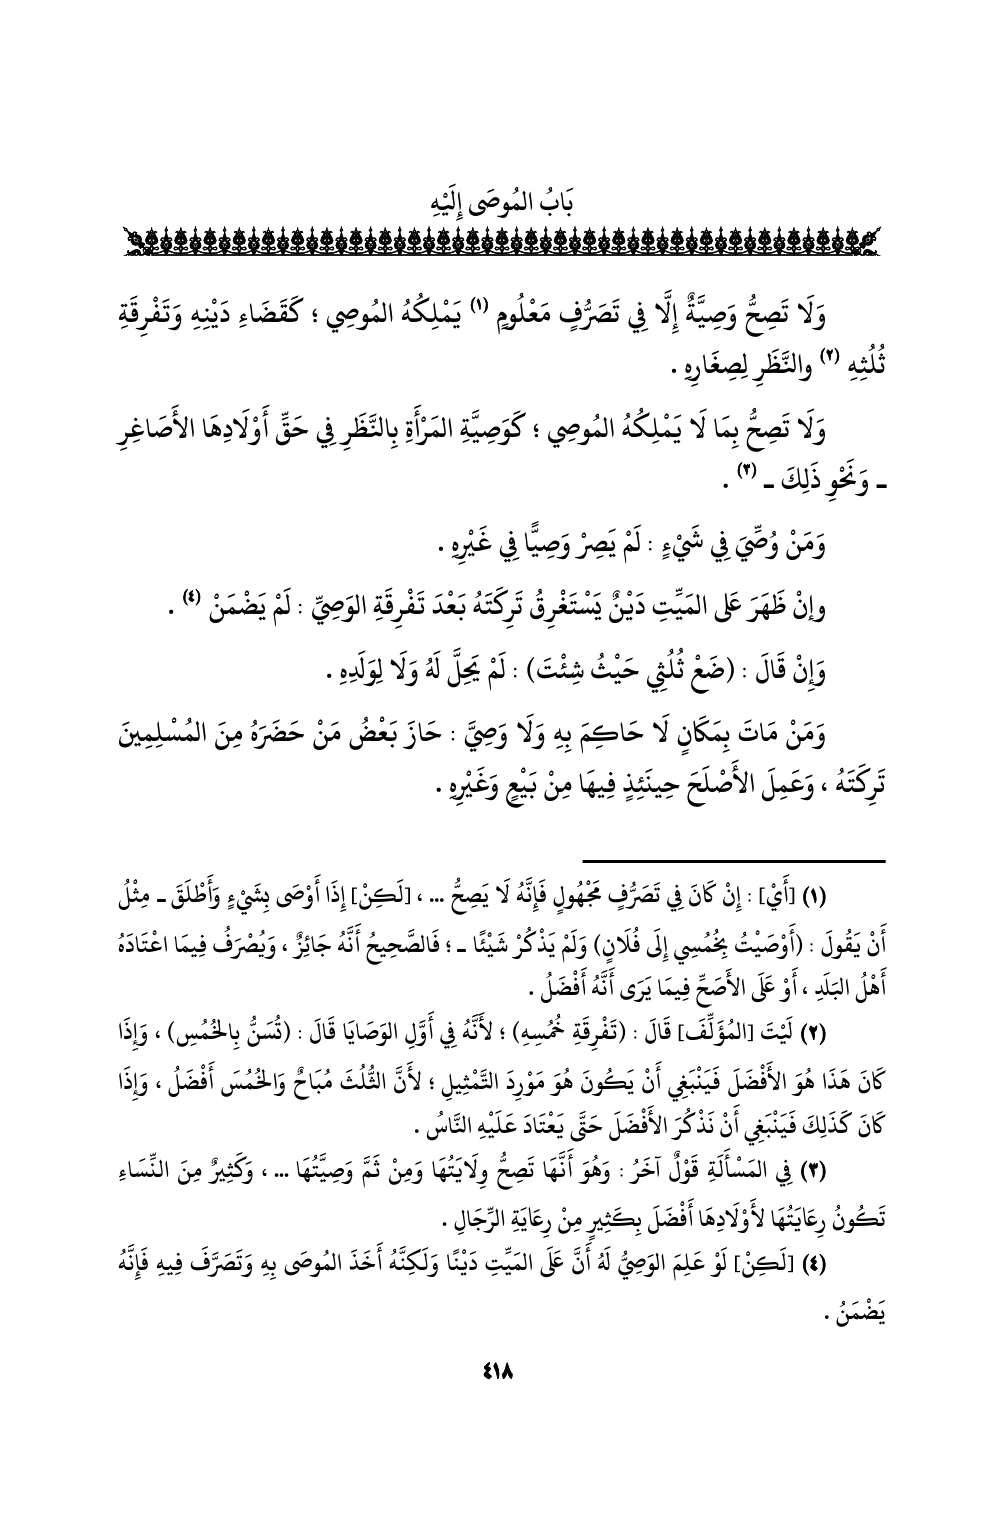 بَابُ المُوصَى إِلَيْهِ
وَلَا تَصِحُّ وَصِيَّةٌ إِلَّا فِي تَصَرُّفٍ مَعْلُومٍ (١) يَمْلِكُهُ المُوصِي ؛ كَقَضَاءِ دَيْنِهِ وَتَفْرِقَةِ
ثُلُثِهِ (٢) والنَّظَرِ لِصِغَارِهِ .
وَلَا تَصِحُّ بِمَا لَا يَمْلِكُهُ المُوصِي ؛ كَوَصِيَّةِ المَرْأَةِ بِالنَّظَرِ فِي حَقِّ أَوْلَادِهَا الأَصَاغِرِ
ـ وَنَحْوِ ذَلِكَ ـ (٣) .
وَمَنْ وُصِّيَ فِي شَيْءٍ : لَمْ يَصِرْ وَصِيًّا فِي غَيْرِهِ .
وإنْ ظَهَرَ عَلى المَيِّتِ دَيْنٌ يَسْتَغْرِقُ تَرِكَتَهُ بَعْدَ تَفْرِقَةِ الوَصِيِّ : لَمْ يَضْمَنْ (٤) .
وَإِنْ قَالَ : (ضَعْ ثُلُثِي حَيْثُ شِئْتَ) : لَمْ يَحِلَّ لَهُ وَلَا لِوَلَدِهِ .
وَمَنْ مَاتَ بِمَكَانٍ لَا حَاكِمَ بِهِ وَلَا وَصِيَّ : حَازَ بَعْضُ مَنْ حَضَرَهُ مِنَ المُسْلِمِينَ
تَرِكَتَهُ ، وَعَمِلَ الأَصْلَحَ حِينَئِذٍ فِيهَا مِنْ بَيْعٍ وَغَيْرِهِ .
(١) [أَيْ] : إِنْ كَانَ فِي تَصَرُّفٍ مَجْهُولٍ فَإِنَّهُ لَا يَصِحُّ ... ، [لَكِنْ] إِذَا أَوْصَى بِشَيْءٍ وَأَطْلَقَ ـ مِثْلُ
أَنْ يَقُولَ : (أَوْصَيْتُ بِخُمُسِي إِلَى فُلَانٍ) وَلَمْ يَذْكُرْ شَيْئًا ـ ؛ فَالصَّحِيحُ أَنَّهُ جَائِزٌ ، وَيُصْرَفُ فِيمَا اعْتَادَهُ
أَهْلُ البَلَدِ ، أَوْ عَلَى الأَصَحِّ فِيمَا يَرَى أَنَّهُ أَفْضَلُ .
(٢) لَيْتَ [المُؤَلِّفَ] قَالَ : (تَفْرِقَةِ خُمُسِهِ) ؛ لأَنَّهُ فِي أَوَّلِ الوَصَايَا قَالَ : (تُسَنُّ بِالخُمُسِ) ، وَإِذَا
كَانَ هَذَا هُوَ الأَفْضَلَ فَيَنْبَغِي أَنْ يَكُونَ هُوَ مَوْرِدَ التَّمْثِيلِ ؛ لأَنَّ الثُّلُثَ مُبَاحٌ وَالخُمُسَ أَفْضَلُ ، وَإِذَا
كَانَ كَذَلِكَ فَيَنْبَغِي أَنْ نَذْكُرَ الأَفْضَلَ حَتَّى يَعْتَادَ عَلَيْهِ النَّاسُ .
(٣) فِي المَسْأَلَةِ قَوْلٌ آخَرُ : وَهُوَ أَنَّهَا تَصِحُّ وِلَايَتُهَا وَمِنْ ثَمَّ وَصِيَّتُهَا ... ، وَكَثِيرٌ مِنَ النِّسَاءِ
تَكُونُ رِعَايَتُهَا لأَوْلَادِهَا أَفْضَلَ بِكَثِيرٍ مِنْ رِعَايَةِ الرِّجَالِ .
(٤) [لَكِنْ] لَوْ عَلِمَ الوَصِيُّ لَهُ أَنَّ عَلَى المَيِّتِ دَيْنًا وَلَكِنَّهُ أَخَذَ المُوصَى بِهِ وَتَصَرَّفَ فِيهِ فَإِنَّهُ
يَضْمَنُ .
٤١٨